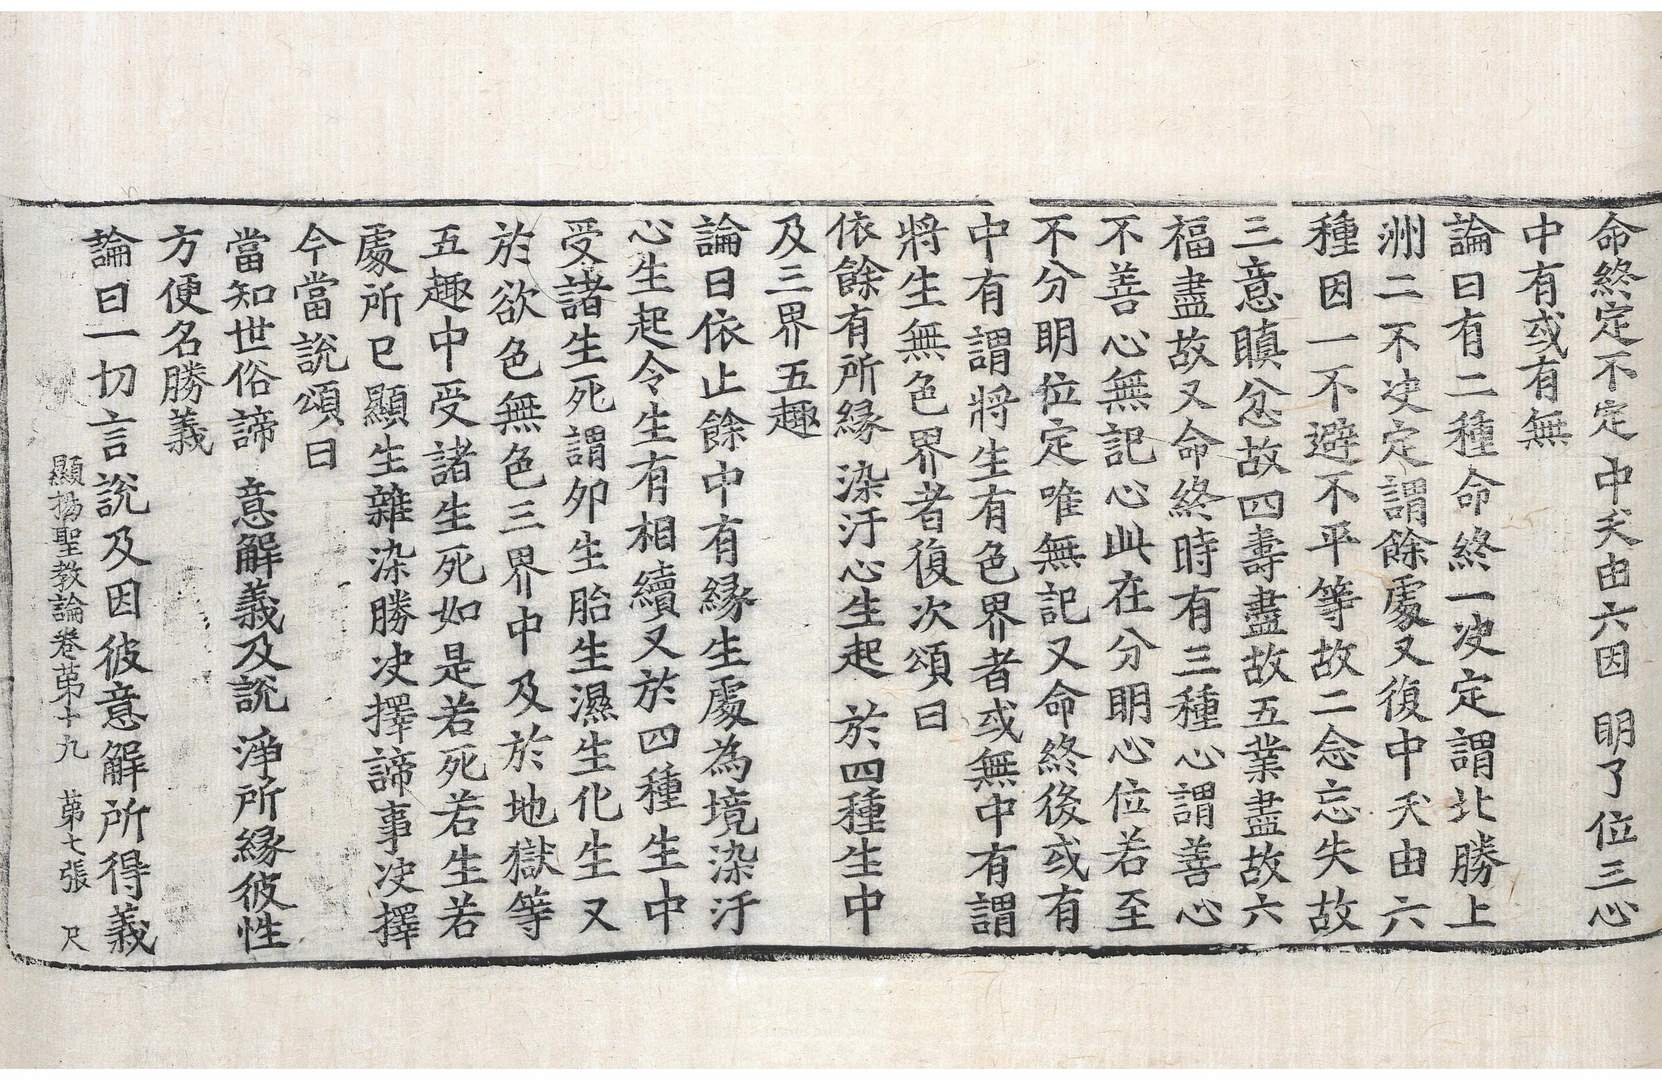 命終定不定 中夭由六因 明了位三心
中有或有無
論曰有二種命終一决定謂北勝上
洲二不决定謂餘處又復中夭由六
種因一不避不平等故二念忘失故
三意瞋忿故四壽盡故五業盡故六
福盡故又命終時有三種心謂善心
不善心無記心此在分明心位若至
不分明位定唯無記又命終後或有
中有謂將生有色界者或無中有謂
將生無色界者復次頌曰
依餘有所縁 染汙心生起 於四種生中
及三界五趣
論曰依止餘中有縁生處為境染汙
心生起令生有相續又於四種生中
受諸生死謂卵生胎生濕生化生又
於欲色無色三界中及於地獄等
五趣中受諸生死如是若死若生若
處所已顯生雜染勝决擇諦事决擇
今當說頌曰
當知世俗諦 意解義及說 淨所縁彼性
方便名勝義
論曰一切言說及因彼意解所得義
顯揚聖教論卷苐十九 苐七張 尺